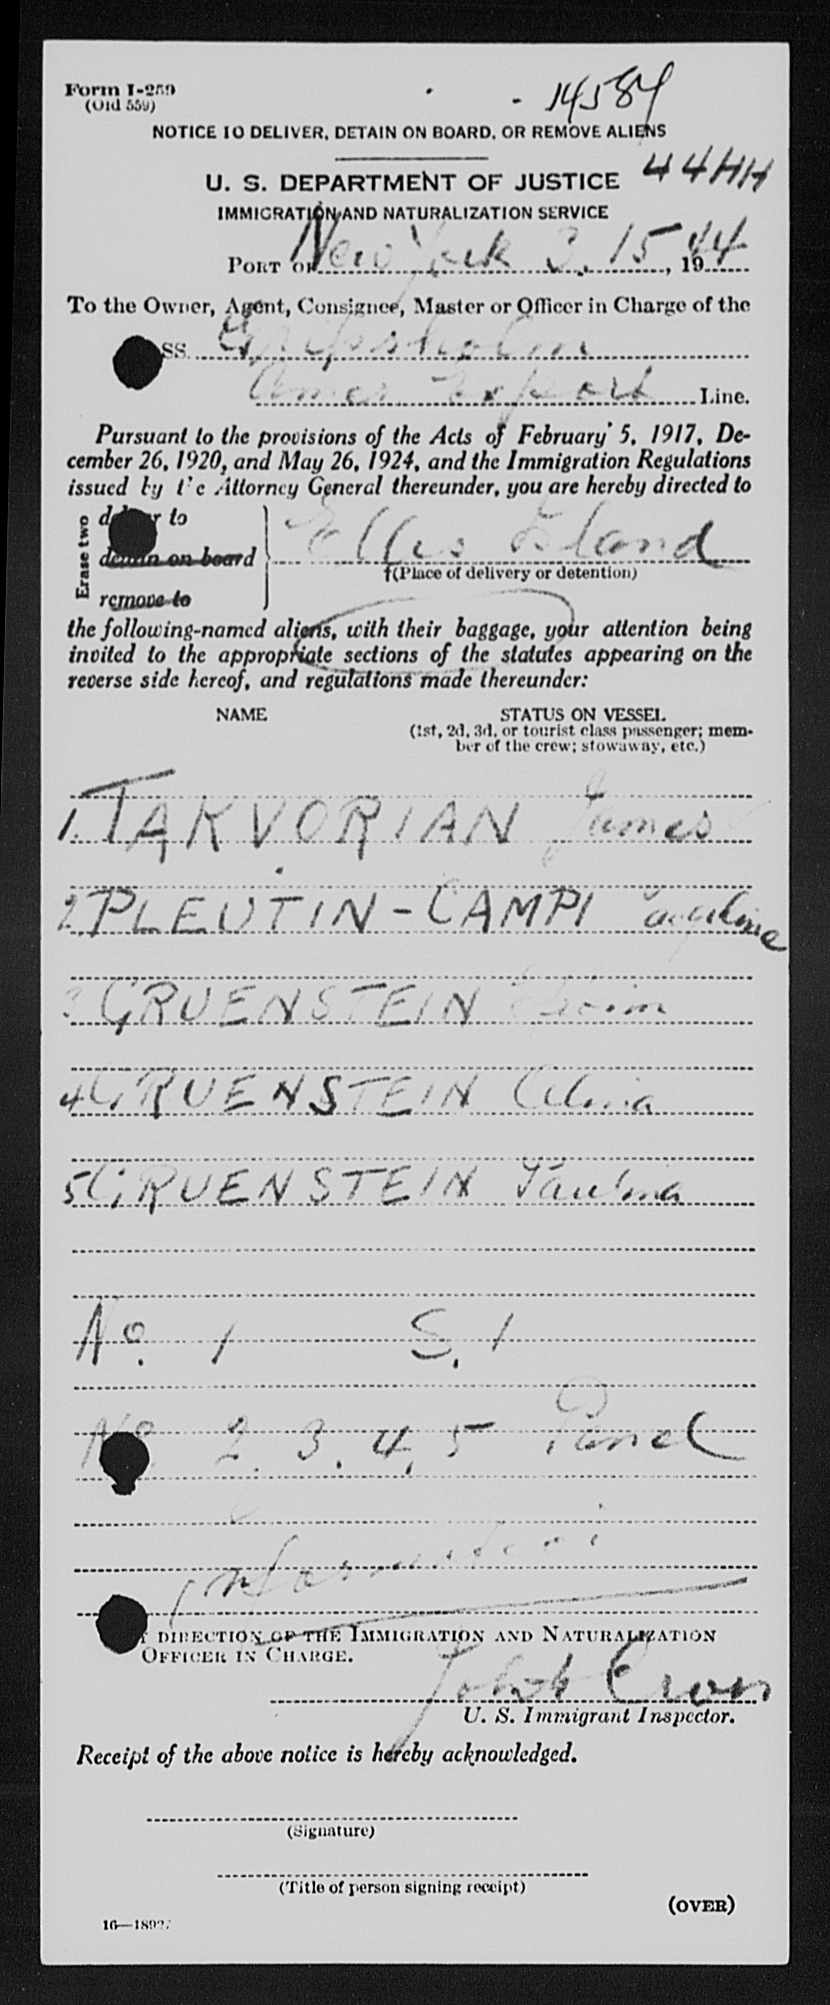 Form I-259
(Old 559)
14584
NOTICE TO DELIVER, DETAIN ON BOARD, OR REMOVE ALIENS
44HH
U. S. DEPARTMENT OF JUSTICE
IMMIGRATION AND NATURALIZATION SERVICE
PORT OF New York 3. 15, 1944
To the Owner, Agent, Consignee, Master or Officer in Charge of the
SS. Gripsholm
Amer. Export Line.
Pursuant to the provisions of the Acts of February 5, 1917, De-
cember 26, 1920, and May 26, 1924, and the Immigration Regulations
issued by the Attorney General thereunder, you are hereby directed to
Erase two
deliver to
detain on board
remove to
Ellis Island
†(Place of delivery or detention)
the following-named aliens, with their baggage, your attention being
invited to the appropriate sections of the statutes appearing on the
reverse side hereof, and regulations made thereunder:
NAME STATUS ON VESSEL
(1st, 2d, 3d, or tourist class passenger; mem-
ber of the crew; stowaway, etc.)
1. TAKVORIAN James
2 PLEUTIN-CAMPI
3 GRUENSTEIN
4 GRUENSTEIN
5 GRUENSTEIN Paulina
No. 1 S. 1
No. 2. 3. 4. 5
DIRECTION OF THE IMMIGRATION AND NATURALIZATION
OFFICER IN CHARGE.
John
U. S. Immigrant Inspector.
Receipt of the above notice is hereby acknowledged.
(Signature)
(Title of person signing receipt)
(OVER)